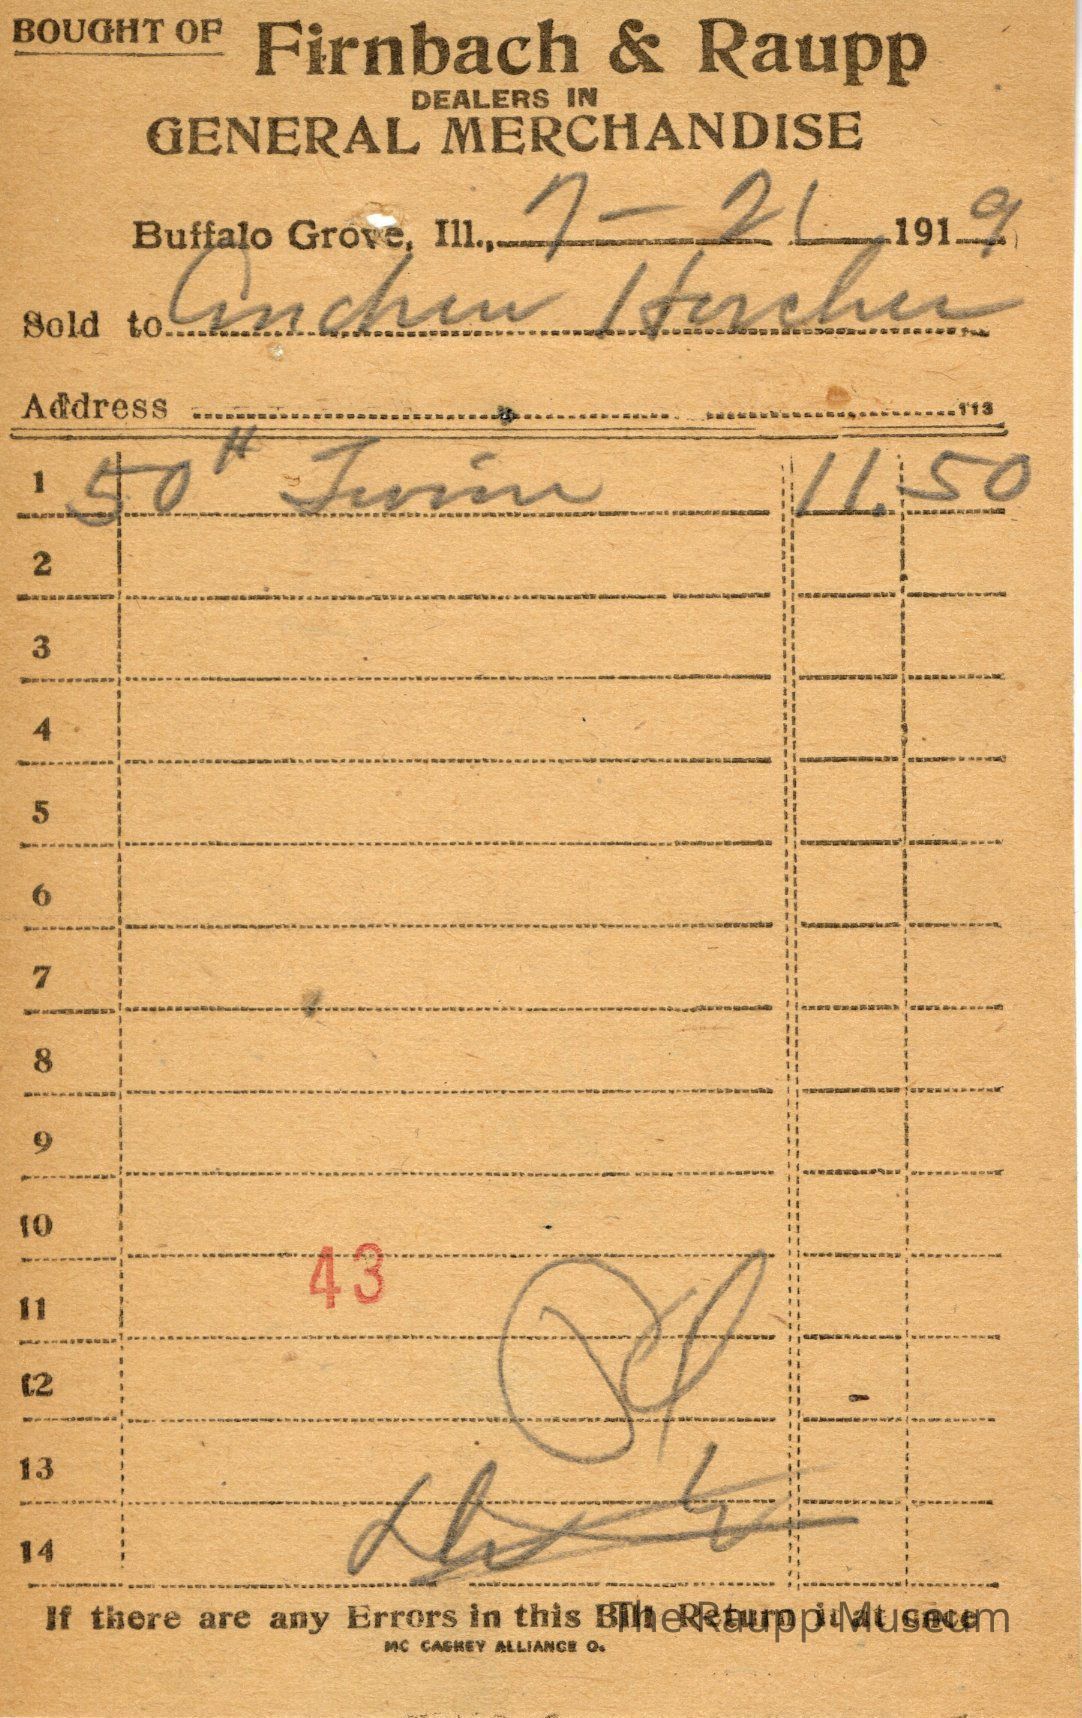 BOUGHT OF Firnbach & Raupp
DEALERS IN
GENERAL MERCHANDISE
Buffalo Grove, Ill., 7 - 21 1919
Sold to Andrew Horcher
Address 113
1 50 # Twine 11.50
2
3
4
5
6
7
8
9
10
43
11
12
13
14
If there are any Errors in this Bill Return it at once
The Raupp Museum
MC CASKEY ALLIANCE O.